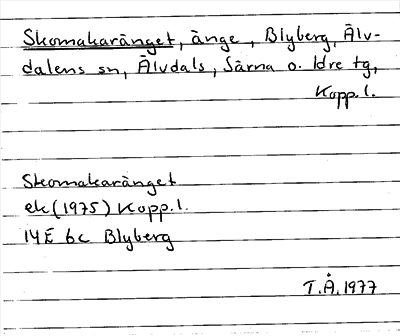 Skomakaränget, änge, Blyberg, Älv-
dalens sn, Älvdals, Särna o. Idre tg,
Kopp.l.
Skomakaränget
ek (1975) Kopp.l.
14E 6c Blyberg
T.Å. 1977